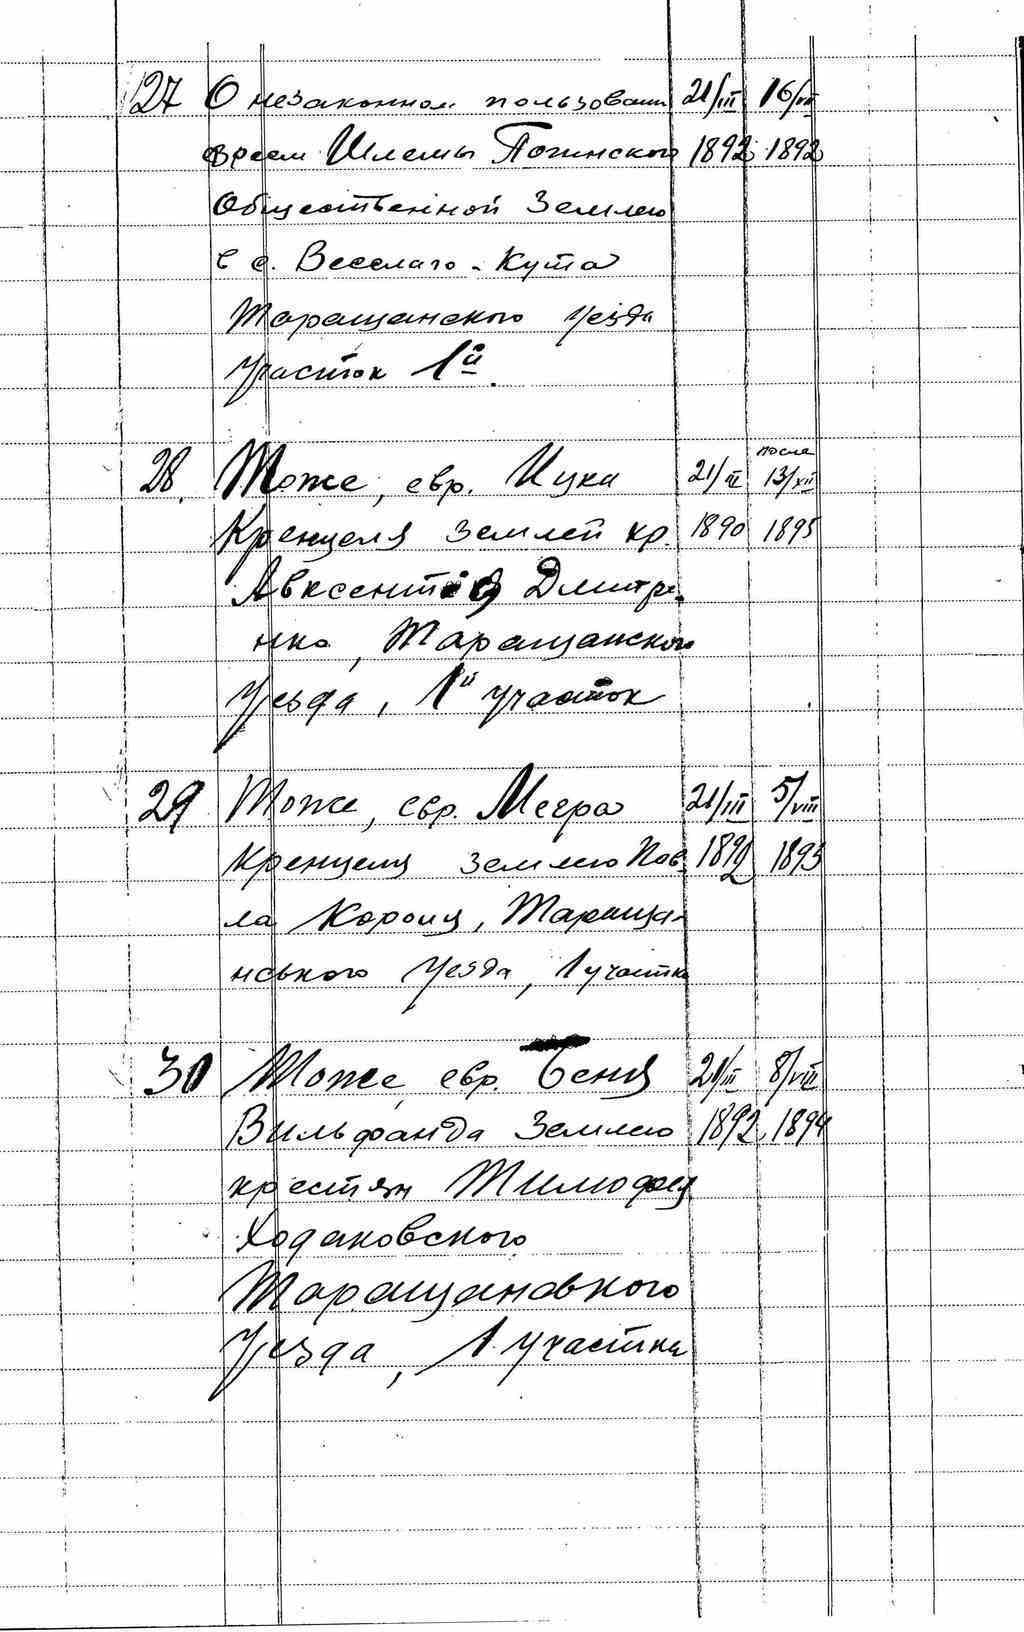 27 О незаконном пользовани 21/III 16/VII
евреем Шлемы Погинского 1892 1892
Общественной Землею
с с. Веселаго-Кута
Таращанского Уезда
Участок 1й.
после
28. Тоже, евр. Ицка 21/III 13/XII
Кренцеля Землей кр. 1890 1895
Авксентія Дмитре-
нко, Таращанского
Уезда, 1й участок
29 Тоже, евр. Меера 21/III 5/VIII
Кренцеля Землею Пав- 1892 1893
ла Короля, Тараща-
нського Уезда, 1 участка
30 Тоже, евр. Беня 21/III 8/VIII
Вильфанда Землею 1892 1894
крестян Тимофея
Ходаковского
Таращановкого
Уезда, 1 участка